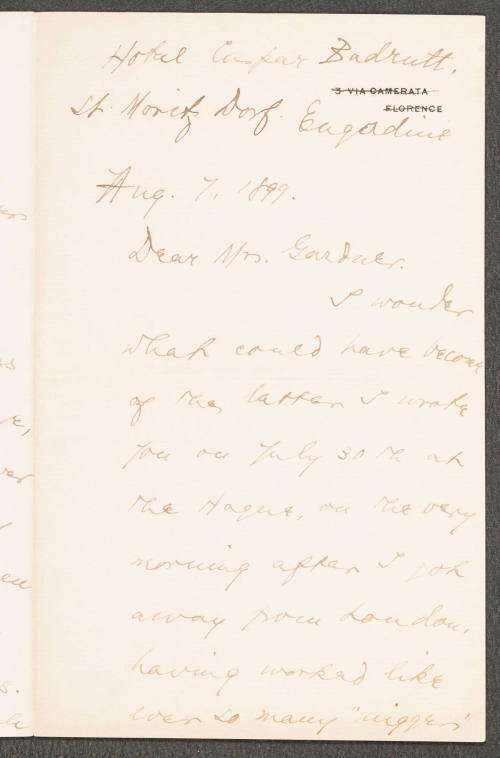 Hotel Caspar Badrutt.
3 VIA CAMERATA
FLORENCE
St. Moritz Dorf. Engadine
Aug. 7, 1899.
Dear Mrs. Gardner.
I wonder
what could have become
of the letter I wrote
you on July 30th at
the Hague, on the very
morning after I got
away from London,
having worked like
ever so many "niggers"